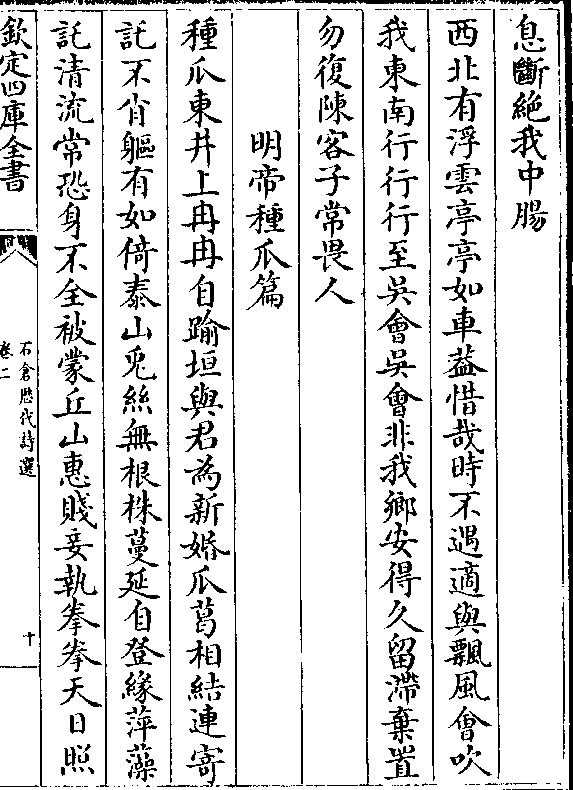 息斷絶我中腸
西北有浮雲亭亭如車葢惜哉時不遇適與飄風會吹
我東南行行行至吳會吳會非我鄉安得久留滯棄置
勿復陳客子常畏人
明帝種瓜篇
種瓜東井上冉冉自踰垣與君為新婚瓜葛相結連寄
託不肖軀有如倚泰山兎絲無根株蔓延自登緣萍藻
託清流常恐身不全被蒙丘山惠賤妾執拳拳天日照
欽定四庫全書
石倉歴代詩選
卷二
十